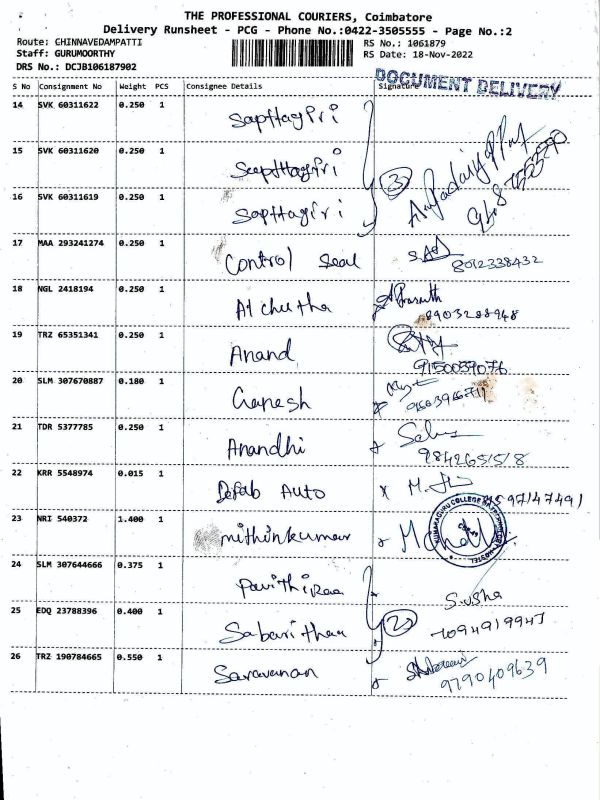 THE PROFESSIONAL COURIERS, Coimbatore
Delivery Runsheet - PCG - Phone No.:0422-3505555 - Page No.:2
Route: CHINNAVEDAMPATTI RS No.: 1061879
Staff: GURUMOORTHY RS Date: 18-Nov-2022
DRS No.: DCJB106187902
DOCUMENT DELIVERY
S No Consignment No Weight PCS Consignee Details Signature
14 SVK 60311622 0.250 1 Sapthagiri
15 SVK 60311620 0.250 1 Sapthagiri
16 SVK 60311619 0.250 1 Sapthagiri
3
17 MAA 293241274 0.250 1 Control Seal
8012338432
18 NGL 2418194 0.250 1 Atchutha A Prasanth
8903288948
19 TRZ 65351341 0.250 1 Anand
9150039076
20 SLM 307670887 0.180 1 Ganesh
21 TDR 5377785 0.250 1 Anandhi
9842651518
22 KRR 5548974 0.015 1 Auto
9597147491
23 NRI 540372 1.400 1 nithinkumar
KUMARAGURU COLLEGE OF TECHNOLOGY HOSTEL
24 SLM 307644666 0.375 1
S. usha
25 EDQ 23788396 0.400 1 2
7094919947
26 TRZ 190784665 0.550 1 Saravanan
9790409639